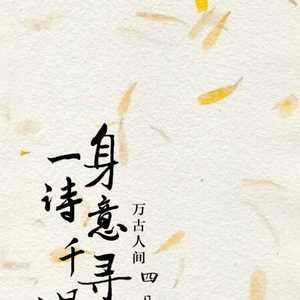 万古人间四
身意寻
一诗千